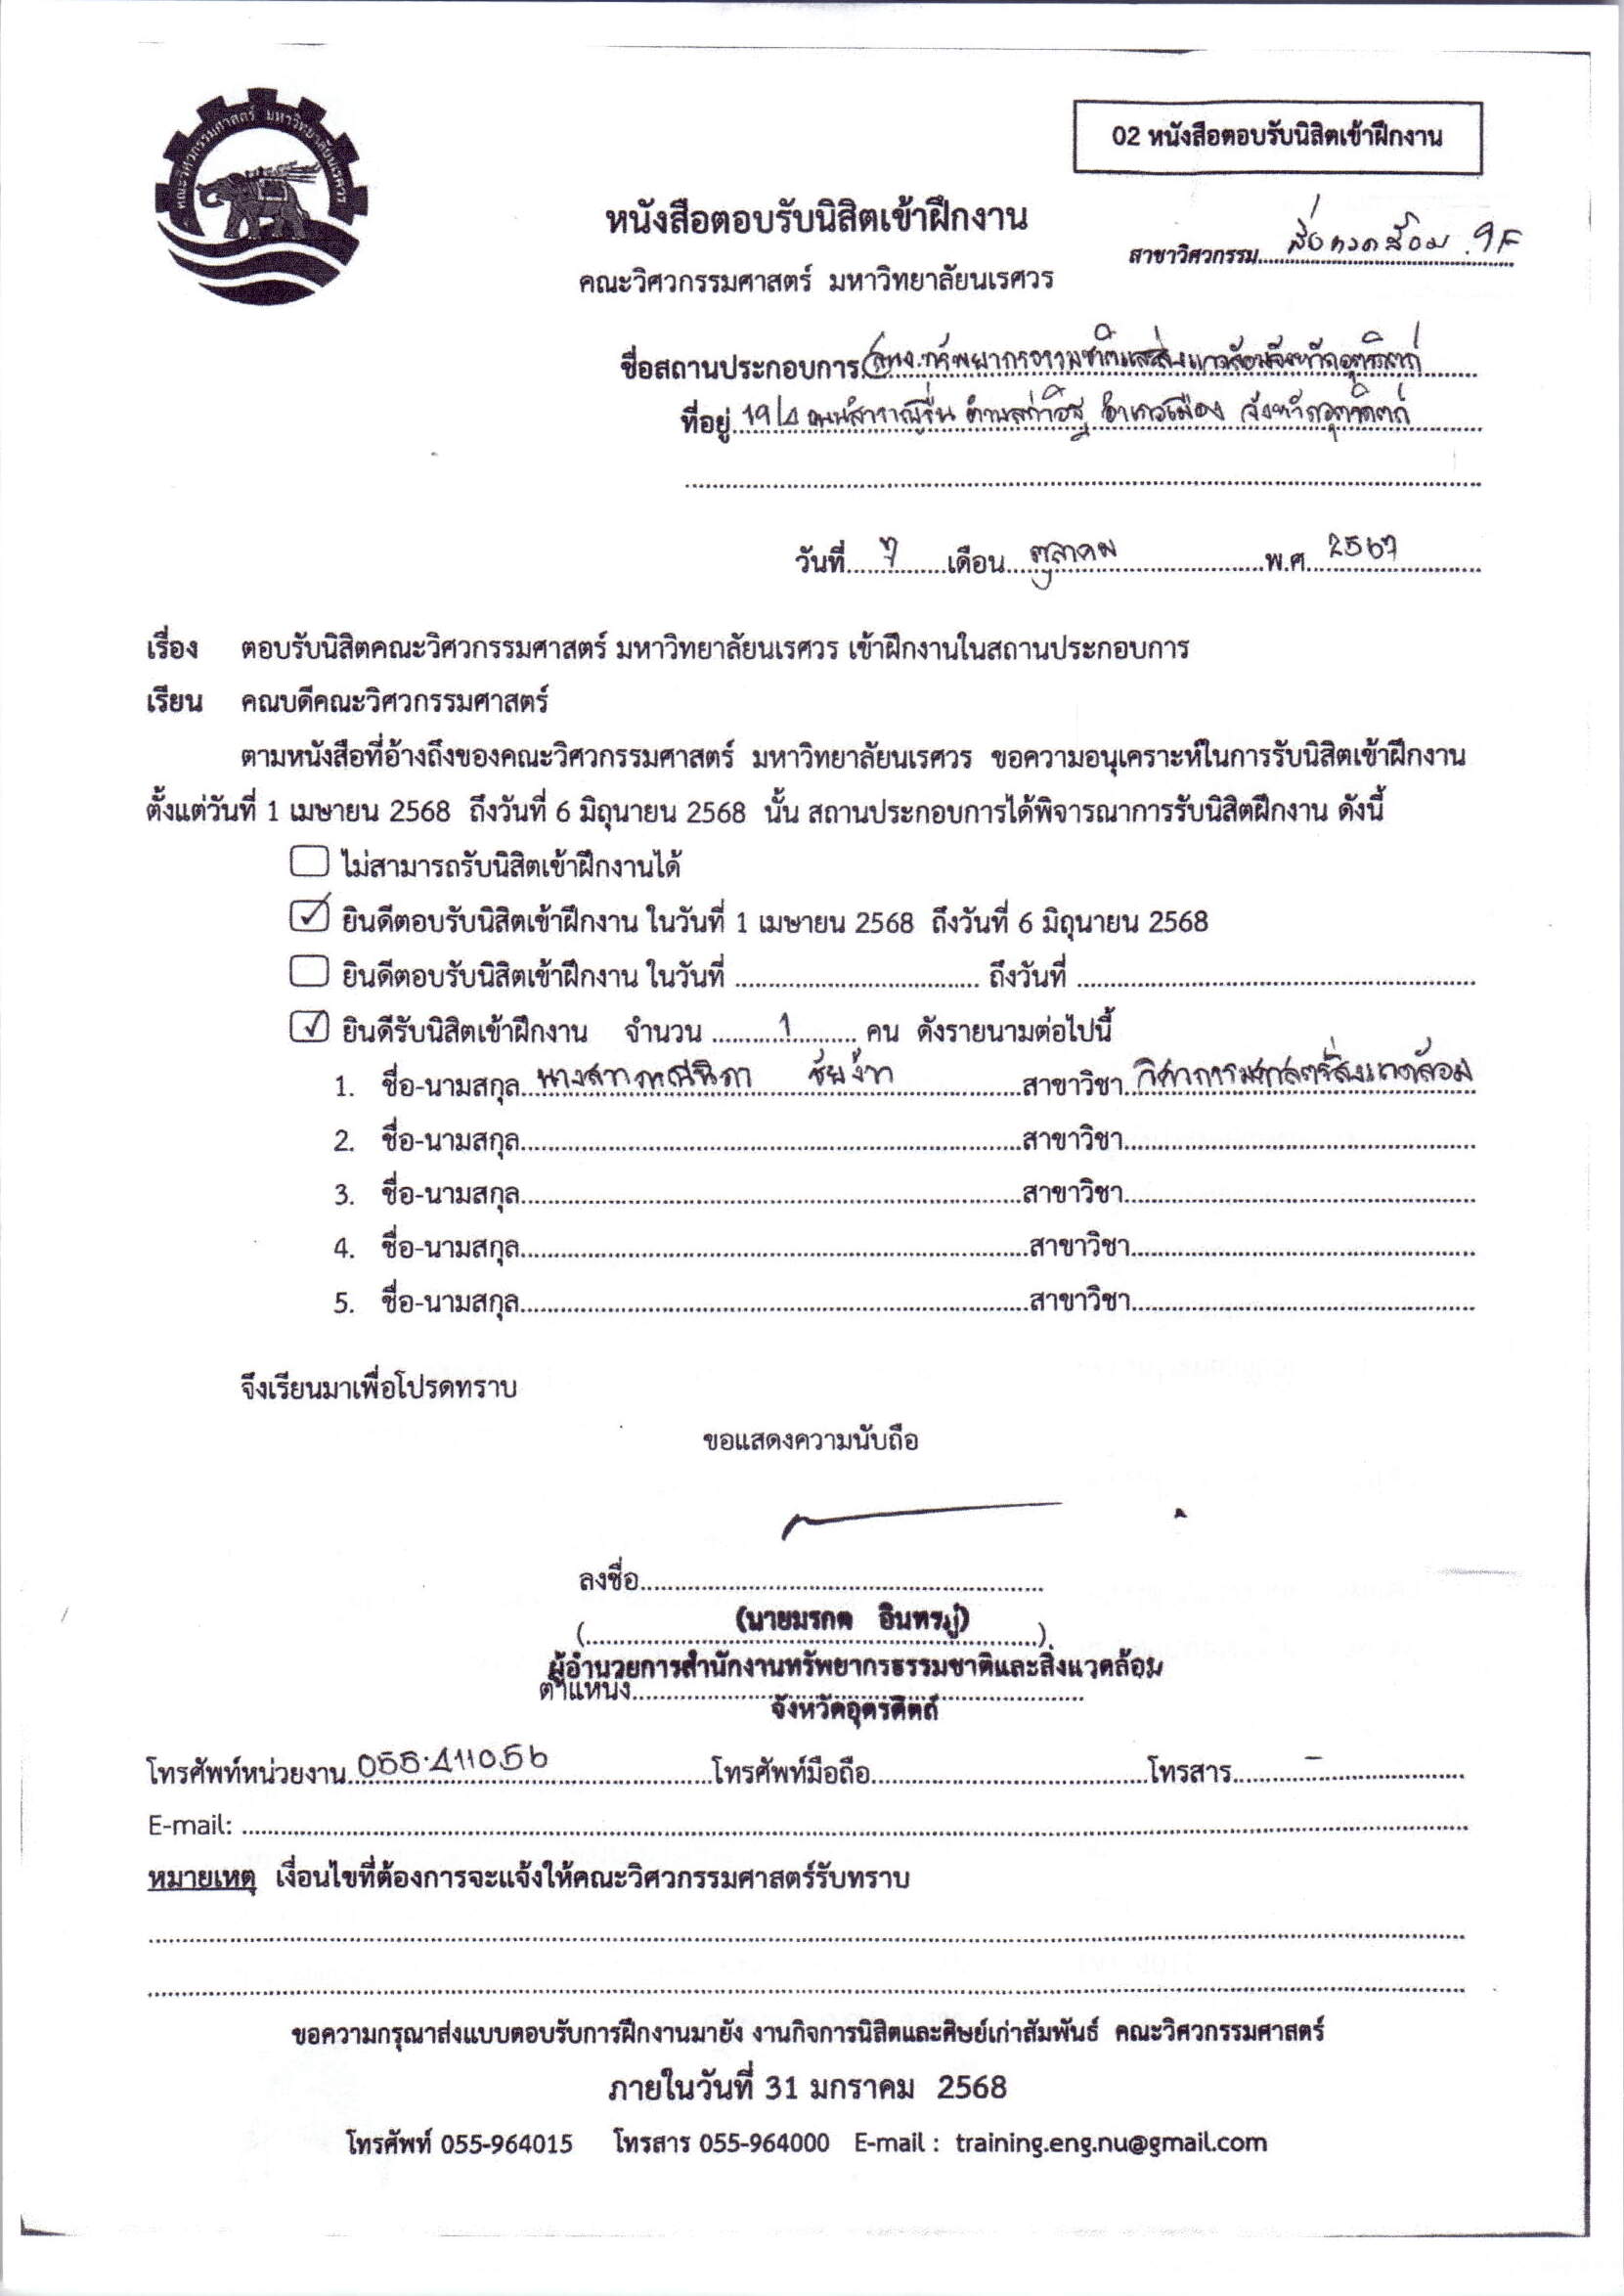 คณะวิศวกรรมศาสตร์ มหาวิทยาลัยนเรศวร
02 หนังสือตอบรับนิสิตเข้าฝึกงาน
หนังสือตอบรับนิสิตเข้าฝึกงาน
สาขาวิศวกรรม สิ่งแวดล้อม
คณะวิศวกรรมศาสตร์ มหาวิทยาลัยนเรศวร
ชื่อสถานประกอบการ สนง.ทรัพยากรธรรมชาติและสิ่งแวดล้อมจังหวัดอุตรดิตถ์
ที่อยู่ ถนนสำราญรื่น ตำบลท่าอิฐ อำเภอเมือง จังหวัดอุตรดิตถ์
วันที่ 7 เดือน ตุลาคม พ.ศ. 2567
เรื่อง ตอบรับนิสิตคณะวิศวกรรมศาสตร์ มหาวิทยาลัยนเรศวร เข้าฝึกงานในสถานประกอบการ
เรียน คณบดีคณะวิศวกรรมศาสตร์
ตามหนังสือที่อ้างถึงของคณะวิศวกรรมศาสตร์ มหาวิทยาลัยนเรศวร ขอความอนุเคราะห์ในการรับนิสิตเข้าฝึกงาน
ตั้งแต่วันที่ 1 เมษายน 2568 ถึงวันที่ 6 มิถุนายน 2568 นั้น สถานประกอบการได้พิจารณาการรับนิสิตฝึกงาน ดังนี้
ไม่สามารถรับนิสิตเข้าฝึกงานได้
ยินดีตอบรับนิสิตเข้าฝึกงาน ในวันที่ 1 เมษายน 2568 ถึงวันที่ 6 มิถุนายน 2568
ยินดีตอบรับนิสิตเข้าฝึกงาน ในวันที่ ถึงวันที่
ยินดีรับนิสิตเข้าฝึกงาน จำนวน 1 คน ดังรายนามต่อไปนี้
1. ชื่อ-นามสกุล นางสาว สาขาวิชา วิศวกรรมศาสตร์สิ่งแวดล้อม
2. ชื่อ-นามสกุล สาขาวิชา
3. ชื่อ-นามสกุล สาขาวิชา
4. ชื่อ-นามสกุล สาขาวิชา
5. ชื่อ-นามสกุล สาขาวิชา
จึงเรียนมาเพื่อโปรดทราบ
ขอแสดงความนับถือ
ลงชื่อ
(นายมรกต อินทรภู่)
ผู้อำนวยการสำนักงานทรัพยากรธรรมชาติและสิ่งแวดล้อม
ตำแหน่ง
จังหวัดอุตรดิตถ์
โทรศัพท์หน่วยงาน 055-411056 โทรศัพท์มือถือ โทรสาร -
E-mail:
หมายเหตุ เงื่อนไขที่ต้องการจะแจ้งให้คณะวิศวกรรมศาสตร์รับทราบ
ขอความกรุณาส่งแบบตอบรับการฝึกงานมายัง งานกิจการนิสิตและศิษย์เก่าสัมพันธ์ คณะวิศวกรรมศาสตร์
ภายในวันที่ 31 มกราคม 2568
โทรศัพท์ 055-964015 โทรสาร 055-964000 E-mail : training.eng.nu@gmail.com